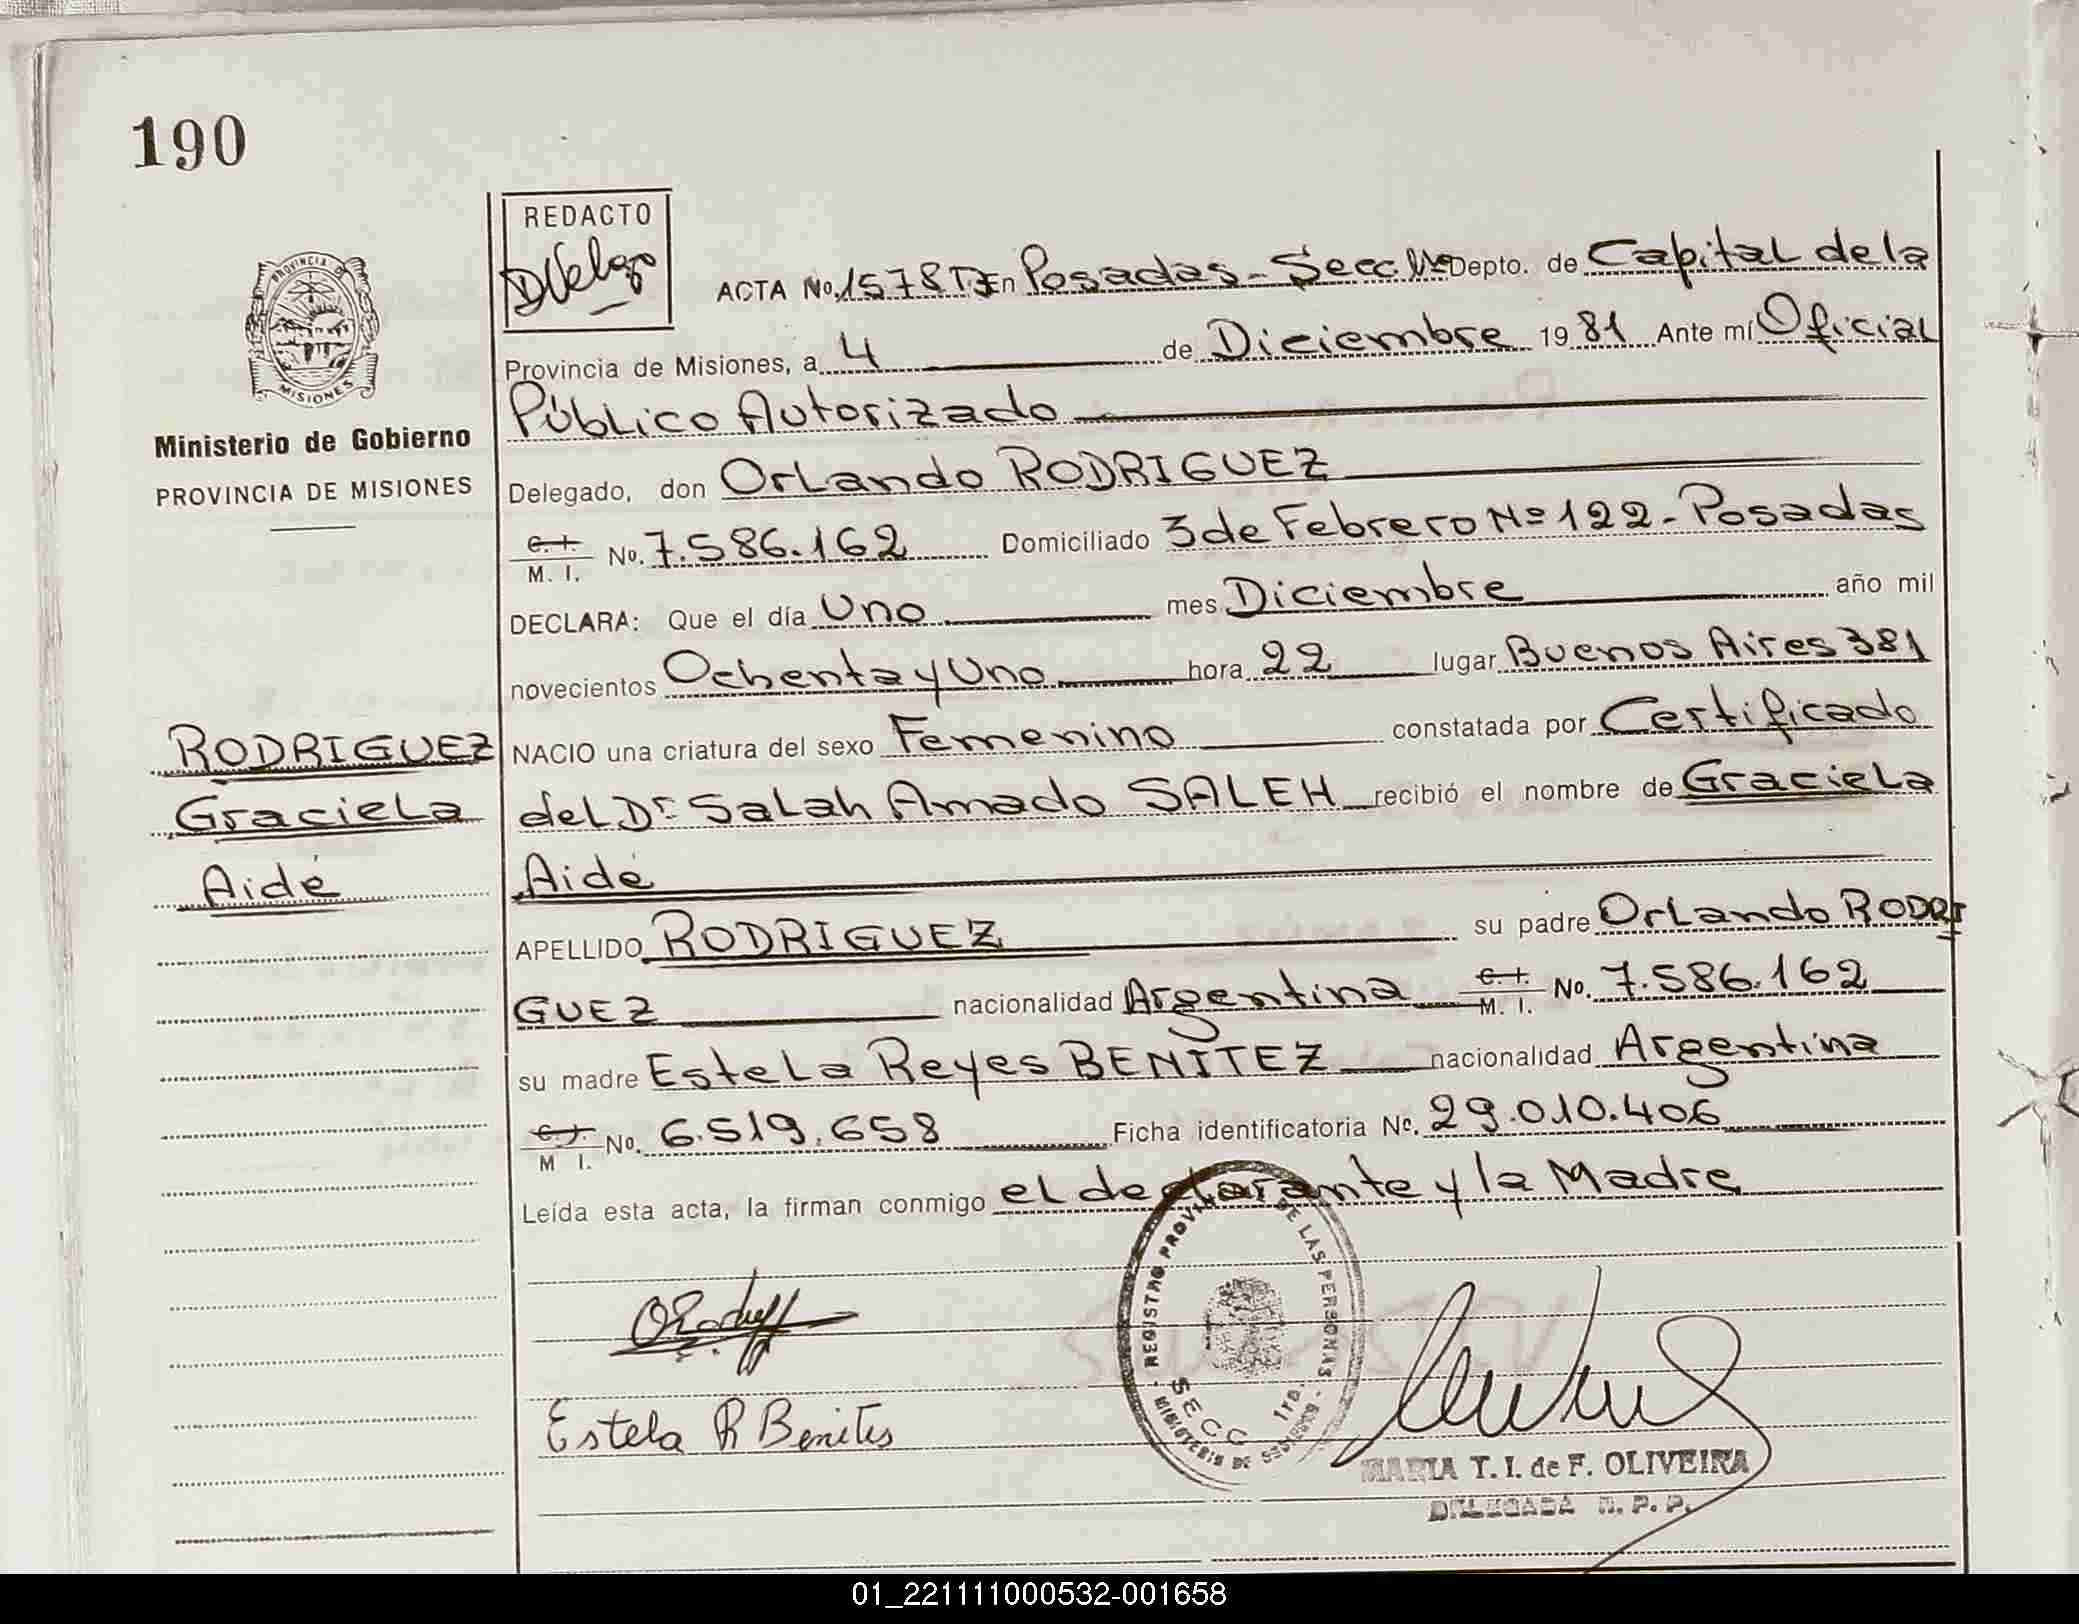 190
REDACTO
DVelazo
PROVINCIA DE
MISIONES
ACTA No. 1578 T.I En Posadas - Secc. 1ª Depto. de Capital de la
Provincia de Misiones, a 4 de Diciembre 1981 Ante mí Oficial
Público Autorizado
Ministerio de Gobierno
PROVINCIA DE MISIONES
Delegado, don Orlando RODRIGUEZ
C. I.
M. I. No. 7.586.162 Domiciliado 3 de Febrero Nº 122 - Posadas
DECLARA: Que el día Uno mes Diciembre año mil
novecientos Ochenta y Uno hora 22 lugar Buenos Aires 381
RODRIGUEZ
Graciela
Aidé
NACIO una criatura del sexo Femenino constatada por Certificado
del Dr. Salah Amado SALEH recibió el nombre de Graciela
Aidé
APELLIDO RODRIGUEZ su padre Orlando RODRI
GUEZ nacionalidad Argentina C. I. M. I. No. 7.586.162
su madre Estela Reyes BENITEZ nacionalidad Argentina
C. I.
M I. No. 6.519.658 Ficha identificatoria No. 29.010.406
Leída esta acta, la firman conmigo el declarante y la Madre
REGISTRO PROVIN DE LAS PERSONAS
SECC 1ra.
MINISTERIO DE GOBIERNO
Estela R Benites
MARIA T. I. de F. OLIVEIRA
DELEGADA R. P. P.
01_221111000532-001658